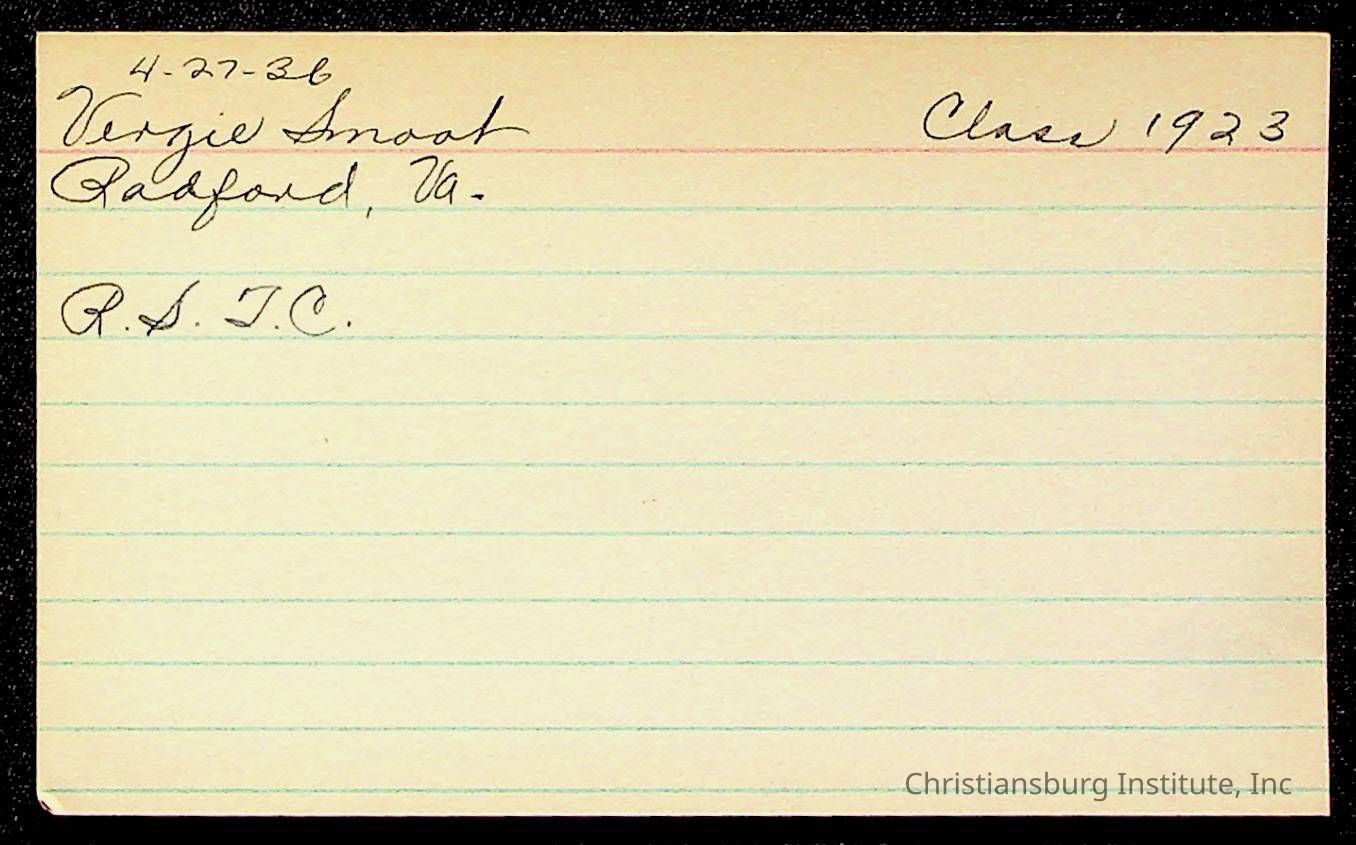 4-27-36
Vergie Smoot Class 1923
Radford, Va.
R. S. T. C.
Christiansburg Institute, Inc